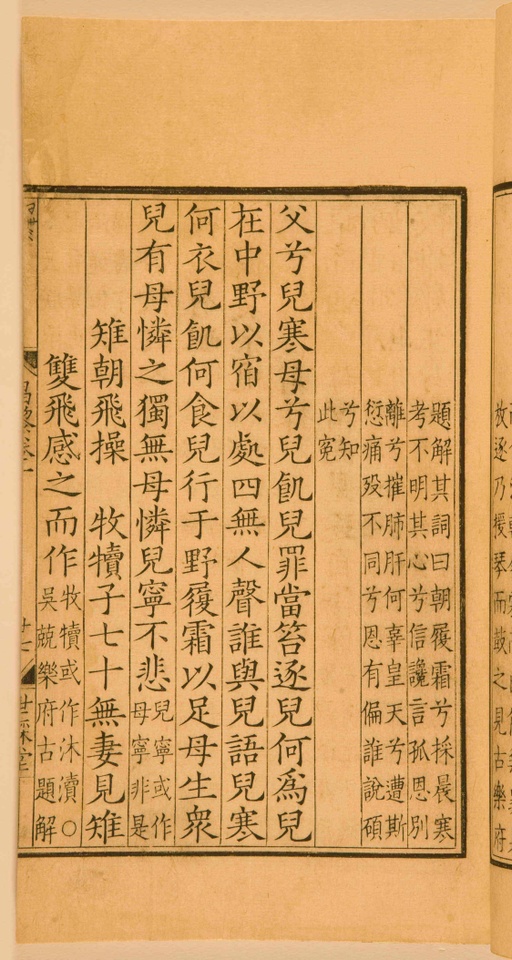 放逐乃援琴而鼓之見古樂府
題解其詞曰朝履霜兮採晨寒
考不明其心兮信讒言孤恩別
離兮摧肺肝何辜皇天兮遭斯
愆痛殁不同兮恩有偏誰說碩
兮知
此冤
父兮兒寒母兮兒飢兒罪當笞逐兒何爲兒
在中野以宿以處四無人聲誰與兒語兒寒
何衣兒飢何食兒行于野履霜以足母生衆
兒有母憐之獨無母憐兒寧不悲兒寧或作
母寧非是
雉朝飛操 牧犢子七十無妻見雉
雙飛感之而作牧犢或作沐瀆〇
吳兢樂府古題解